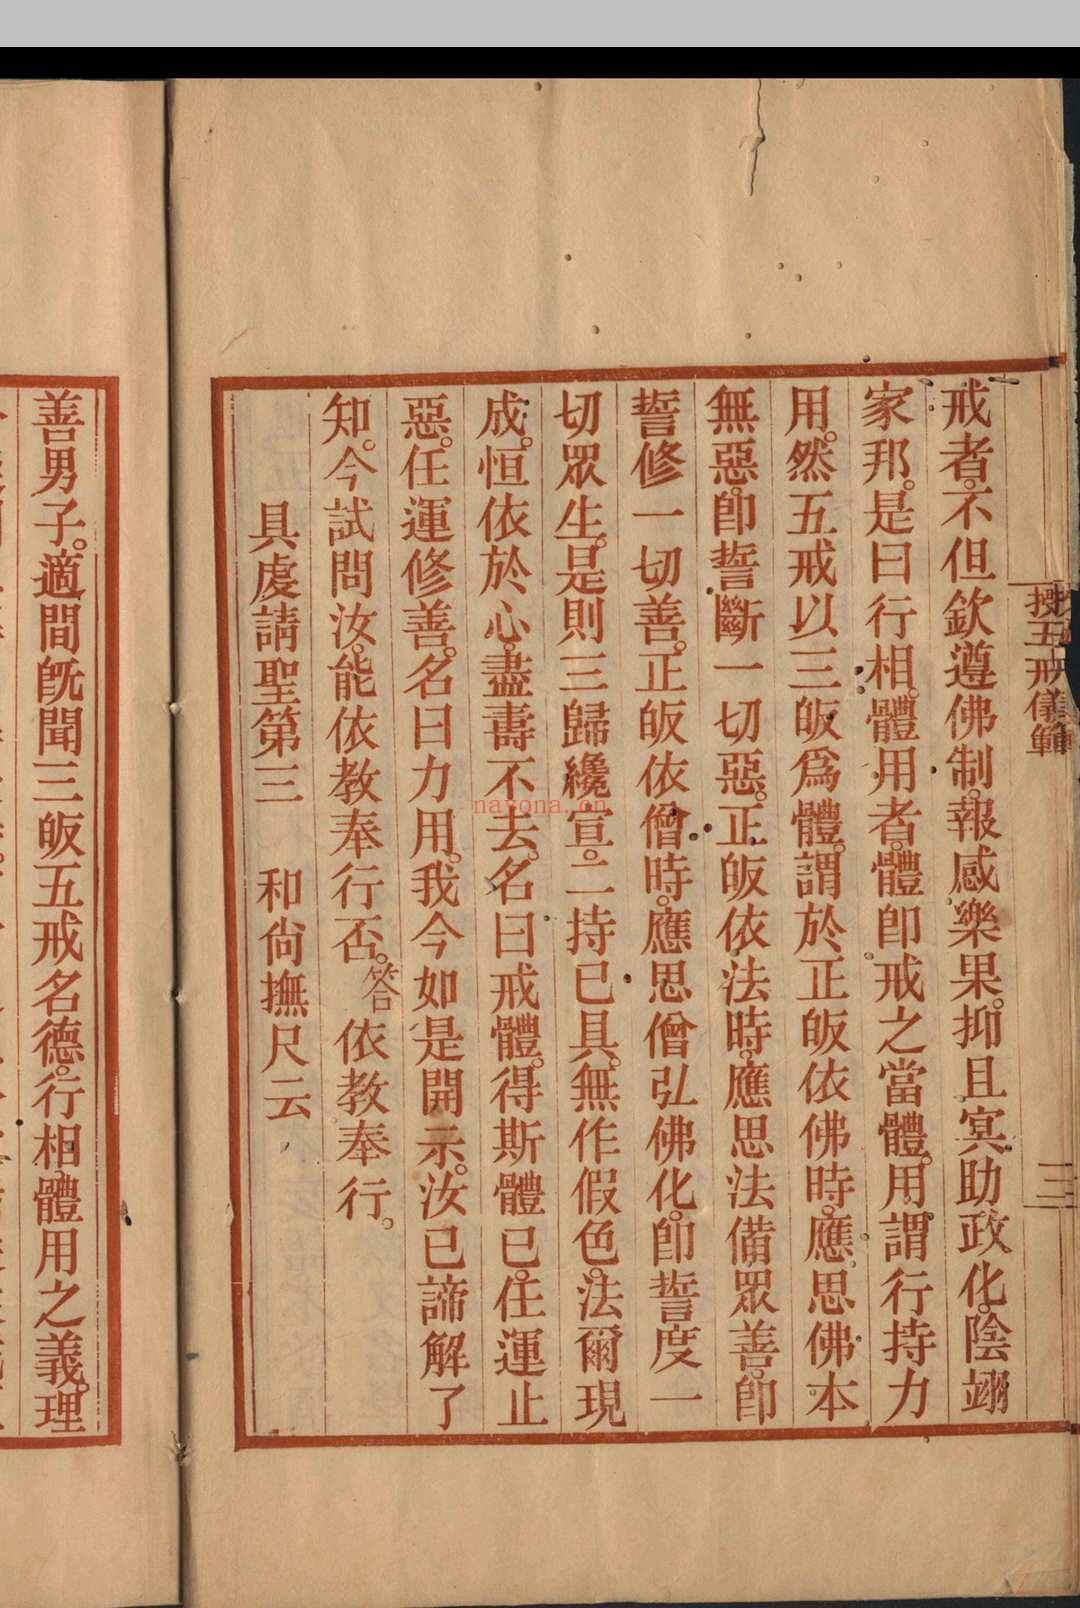 授五戒儀範
三
戒者。不但欽遵佛制。報感樂果。抑且冥助政化。陰翊
家邦。是曰行相。體用者。體卽戒之當體。用謂行持力
用。然五戒以三皈爲體。謂於正皈依佛時。應思佛本
無惡。卽誓斷一切惡。正皈依法時。應思法備眾善。卽
誓修一切善。正皈依僧時。應思僧弘佛化。卽誓度一
切眾生。是則三歸纔宣。二持已具。無作假色。法爾現
成。恒依於心。盡壽不去。名曰戒體。得斯體已。任運止
惡。任運修善。名曰力用。我今如是開示。汝已諦解了
知。今試問汝。能依教奉行否。答依教奉行。
具虔請聖第三　和尙撫尺云
善男子。適間旣聞三皈五戒名德。行相體用之義。理
nayona.cn